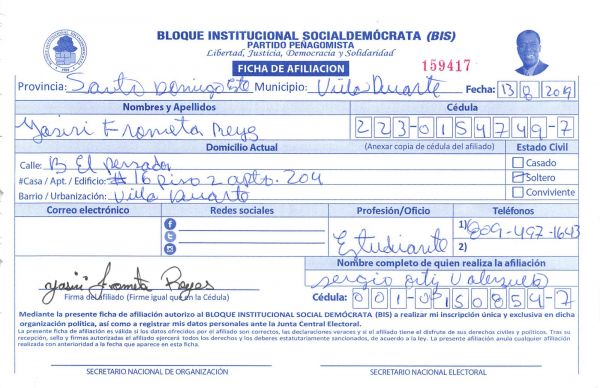 BLOQUE INSTITUCIONAL SOCIALDEMÓCRATA (BIS)
PARTIDO PEÑAGOMISTA
Libertad, Justicia, Democracia y Solidaridad
FICHA DE AFILIACION
159417
Provincia: Santo Domingo Este Municipio: Villa Duarte Fecha: 13 8 2019
Nombres y Apellidos Cédula
Yasiri Frometa Reyes 223-0154749-7
Domicilio Actual (Anexar copia de cédula del afiliado) Estado Civil
Calle: B El Pensador Casado
#Casa / Apt. / Edificio: #16 piso 2 apto. 204 Soltero
Barrio / Urbanización: Villa Duarte Conviviente
Correo electrónico Redes sociales Profesión/Oficio Teléfonos
Estudiante 1) 809-497-1643
2)
Nombre completo de quien realiza la afiliación
Yasiri Frometa Reyes Sergio Ortiz Valenzuela
Firma del Afiliado (Firme igual que en la Cédula) Cédula: 001-0150854-7
Mediante la presente ficha de afiliación autorizo al BLOQUE INSTITUCIONAL SOCIAL DEMÓCRATA (BIS) a realizar mi inscripción única y exclusiva en dicha
organización política, así como a registrar mis datos personales ante la Junta Central Electoral.
La presente ficha de afiliación es válida si los datos ofrecidos por el afiliado son correctos, las declaraciones veraces y si el afiliado tiene el disfrute de sus derechos civiles y políticos. Tras su
recepción, sello y firmas autorizadas el afiliado ejercerá todos los derechos y los deberes estatutariamente sancionados, de acuerdo a la ley. La presente afiliación anula cualquier afiliación
realizada con anterioridad a la fecha que aparece en esta ficha.
SECRETARIO NACIONAL DE ORGANIZACIÓN SECRETARIO NACIONAL ELECTORAL